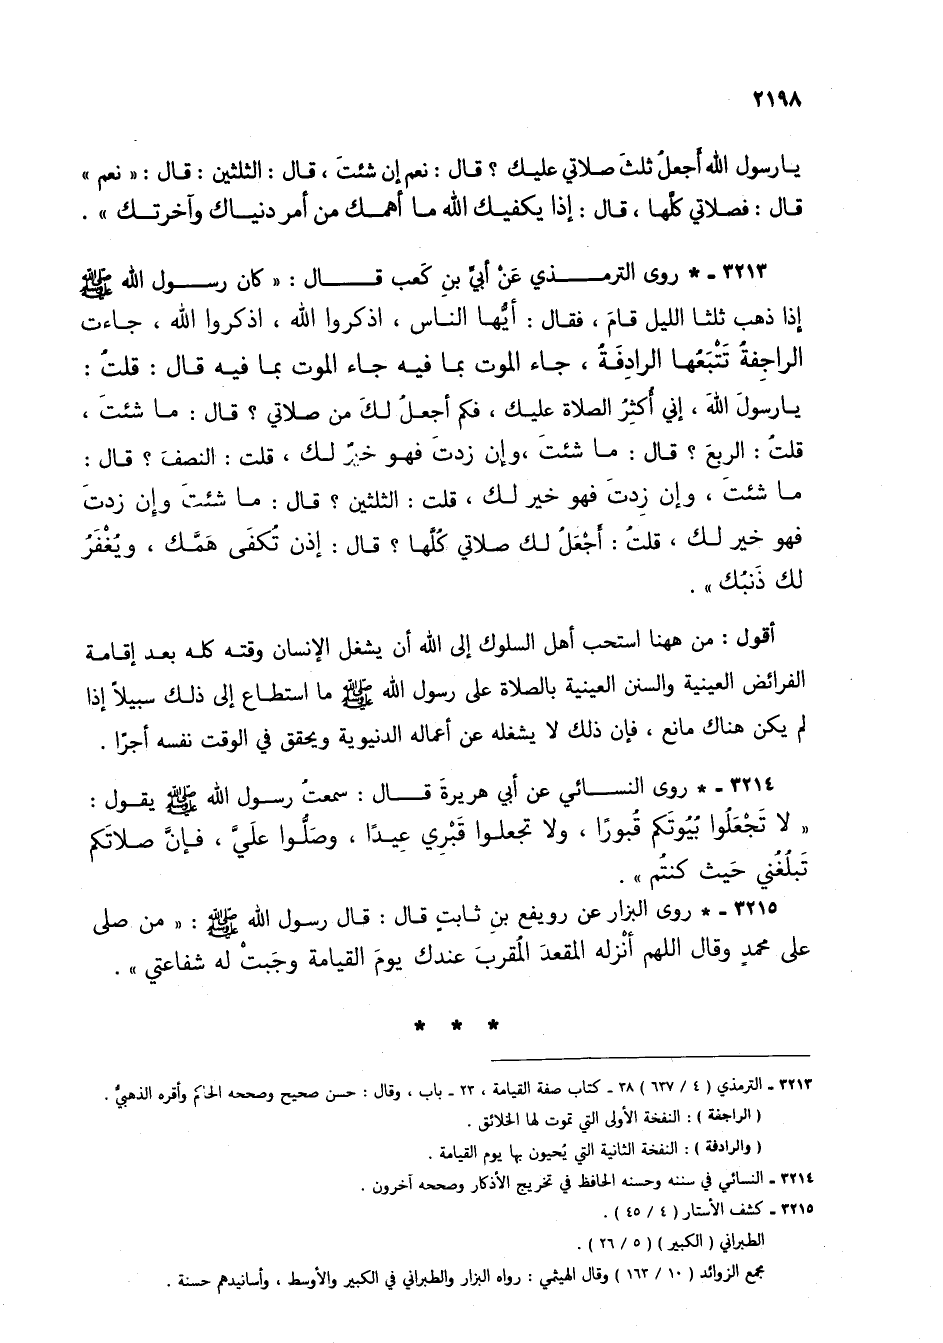 ٢١٩٨
يارسول الله أَجعلُ ثلثَ صلاتي عليك ؟ قال : نعم إن شئتَ ، قال : الثلثين : قال : « نعم »
قال : فصلاتي كلَّها ، قال : إذا يكفيك الله ما أهمك من أمر دنياك وآخرتك » .
٣٢١٣ - * روى الترمذي عَنْ أبيِّ بنِ كَعب قال : « كان رسول الله ﷺ
إذا ذهب ثلثا الليل قامَ ، فقال : أيُّها الناس ، اذكروا الله ، اذكروا الله ، جاءت
الراجِفةُ تَتْبَعُها الرادِفَةُ ، جاء الموت بما فيه جاء الموت بما فيه قال : قلتُ :
يارسولَ اللهَ ، إني أُكثِرُ الصلاة عليك ، فكم أجعلُ لكَ من صلاتي ؟ قال : ما شئتَ ،
قلتُ : الربعَ ؟ قال : ما شئتَ ،وإن زدتَ فهو خيرٌ لك ، قلت : النصفَ ؟ قال :
ما شئتَ ، وإن زِدتَ فهو خير لك ، قلت : الثلثين ؟ قال : ما شئتَ وإن زدتَ
فهو خير لك ، قلتُ : أَجْعَلُ لك صلاتي كُلَّها ؟ قال : إذن تُكفَى هَمَّك ، ويُغْفَرُ
لك ذَنبُك » .
أقول : من ههنا استحب أهل السلوك إلى الله أن يشغل الإنسان وقته كله بعد إقامة
الفرائض العينية والسنن العينية بالصلاة على رسول الله ﷺ ما استطاع إلى ذلك سبيلاً إذا
لم يكن هناك مانع ، فإن ذلك لا يشغله عن أعماله الدنيوية ويحقق في الوقت نفسه أجرًا .
٣٢١٤ - * روى النسائي عن أبي هريرةَ قال : سمعتُ رسول الله ﷺ يقول :
« لا تَجْعَلُوا بُيُوتَكم قُبورًا ، ولا تجعلوا قَبْرِي عِيدًا ، وصَلُّوا علَيَّ ، فإنَّ صلاتَكم
تَبلُغُني حَيث كنتُم » .
٣٢١٥ - * روى البزار عن رويفع بنِ ثابتٍ قال : قال رسول الله ﷺ : « من صلى
على محمدٍ وقال اللهم أنْزله المقعدَ المُقربَ عندك يومَ القيامة وجَبتْ له شفاعتي » .
* * *
٣٢١٣ - الترمذي ( ٤ / ٦٣٧ ) ٣٨ - كتاب صفة القيامة ، ٢٣ - باب ، وقال : حسن صحيح وصححه الحاكم وأقره الذهبيُّ .
( الراجفة ) : النفخة الأولى التي تموت لها الخلائق .
( والرادفة ) : النفخة الثانية التي يُحيون بها يوم القيامة .
٣٢١٤ - النسائي في سننه وحسنه الحافظ في تخريج الأذكار وصححه آخرون .
٣٢١٥ - كشف الأستار ( ٤ / ٤٥ ) .
الطبراني ( الكبير ) ( ٥ / ٢٦ ) .
مجمع الزوائد ( ١٠ / ١٦٣ ) وقال الهيثمي : رواه البزار والطبراني في الكبير والأوسط ، وأسانيدهم حسنة .